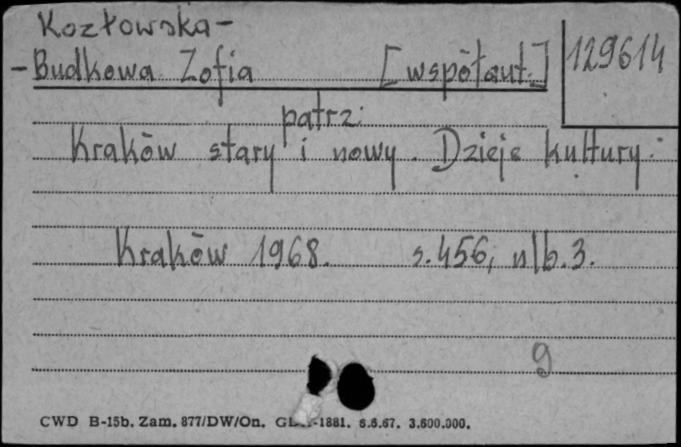 Kozłowska-
-Budkowa Zofia [współaut.] 129614
patrz:
Kraków stary i nowy. Dzieje kultury.
Kraków 1968. s.456, nlb.3.
9
CWD B-15b. Zam. 877/DW/On. -1881. 3.600.000.